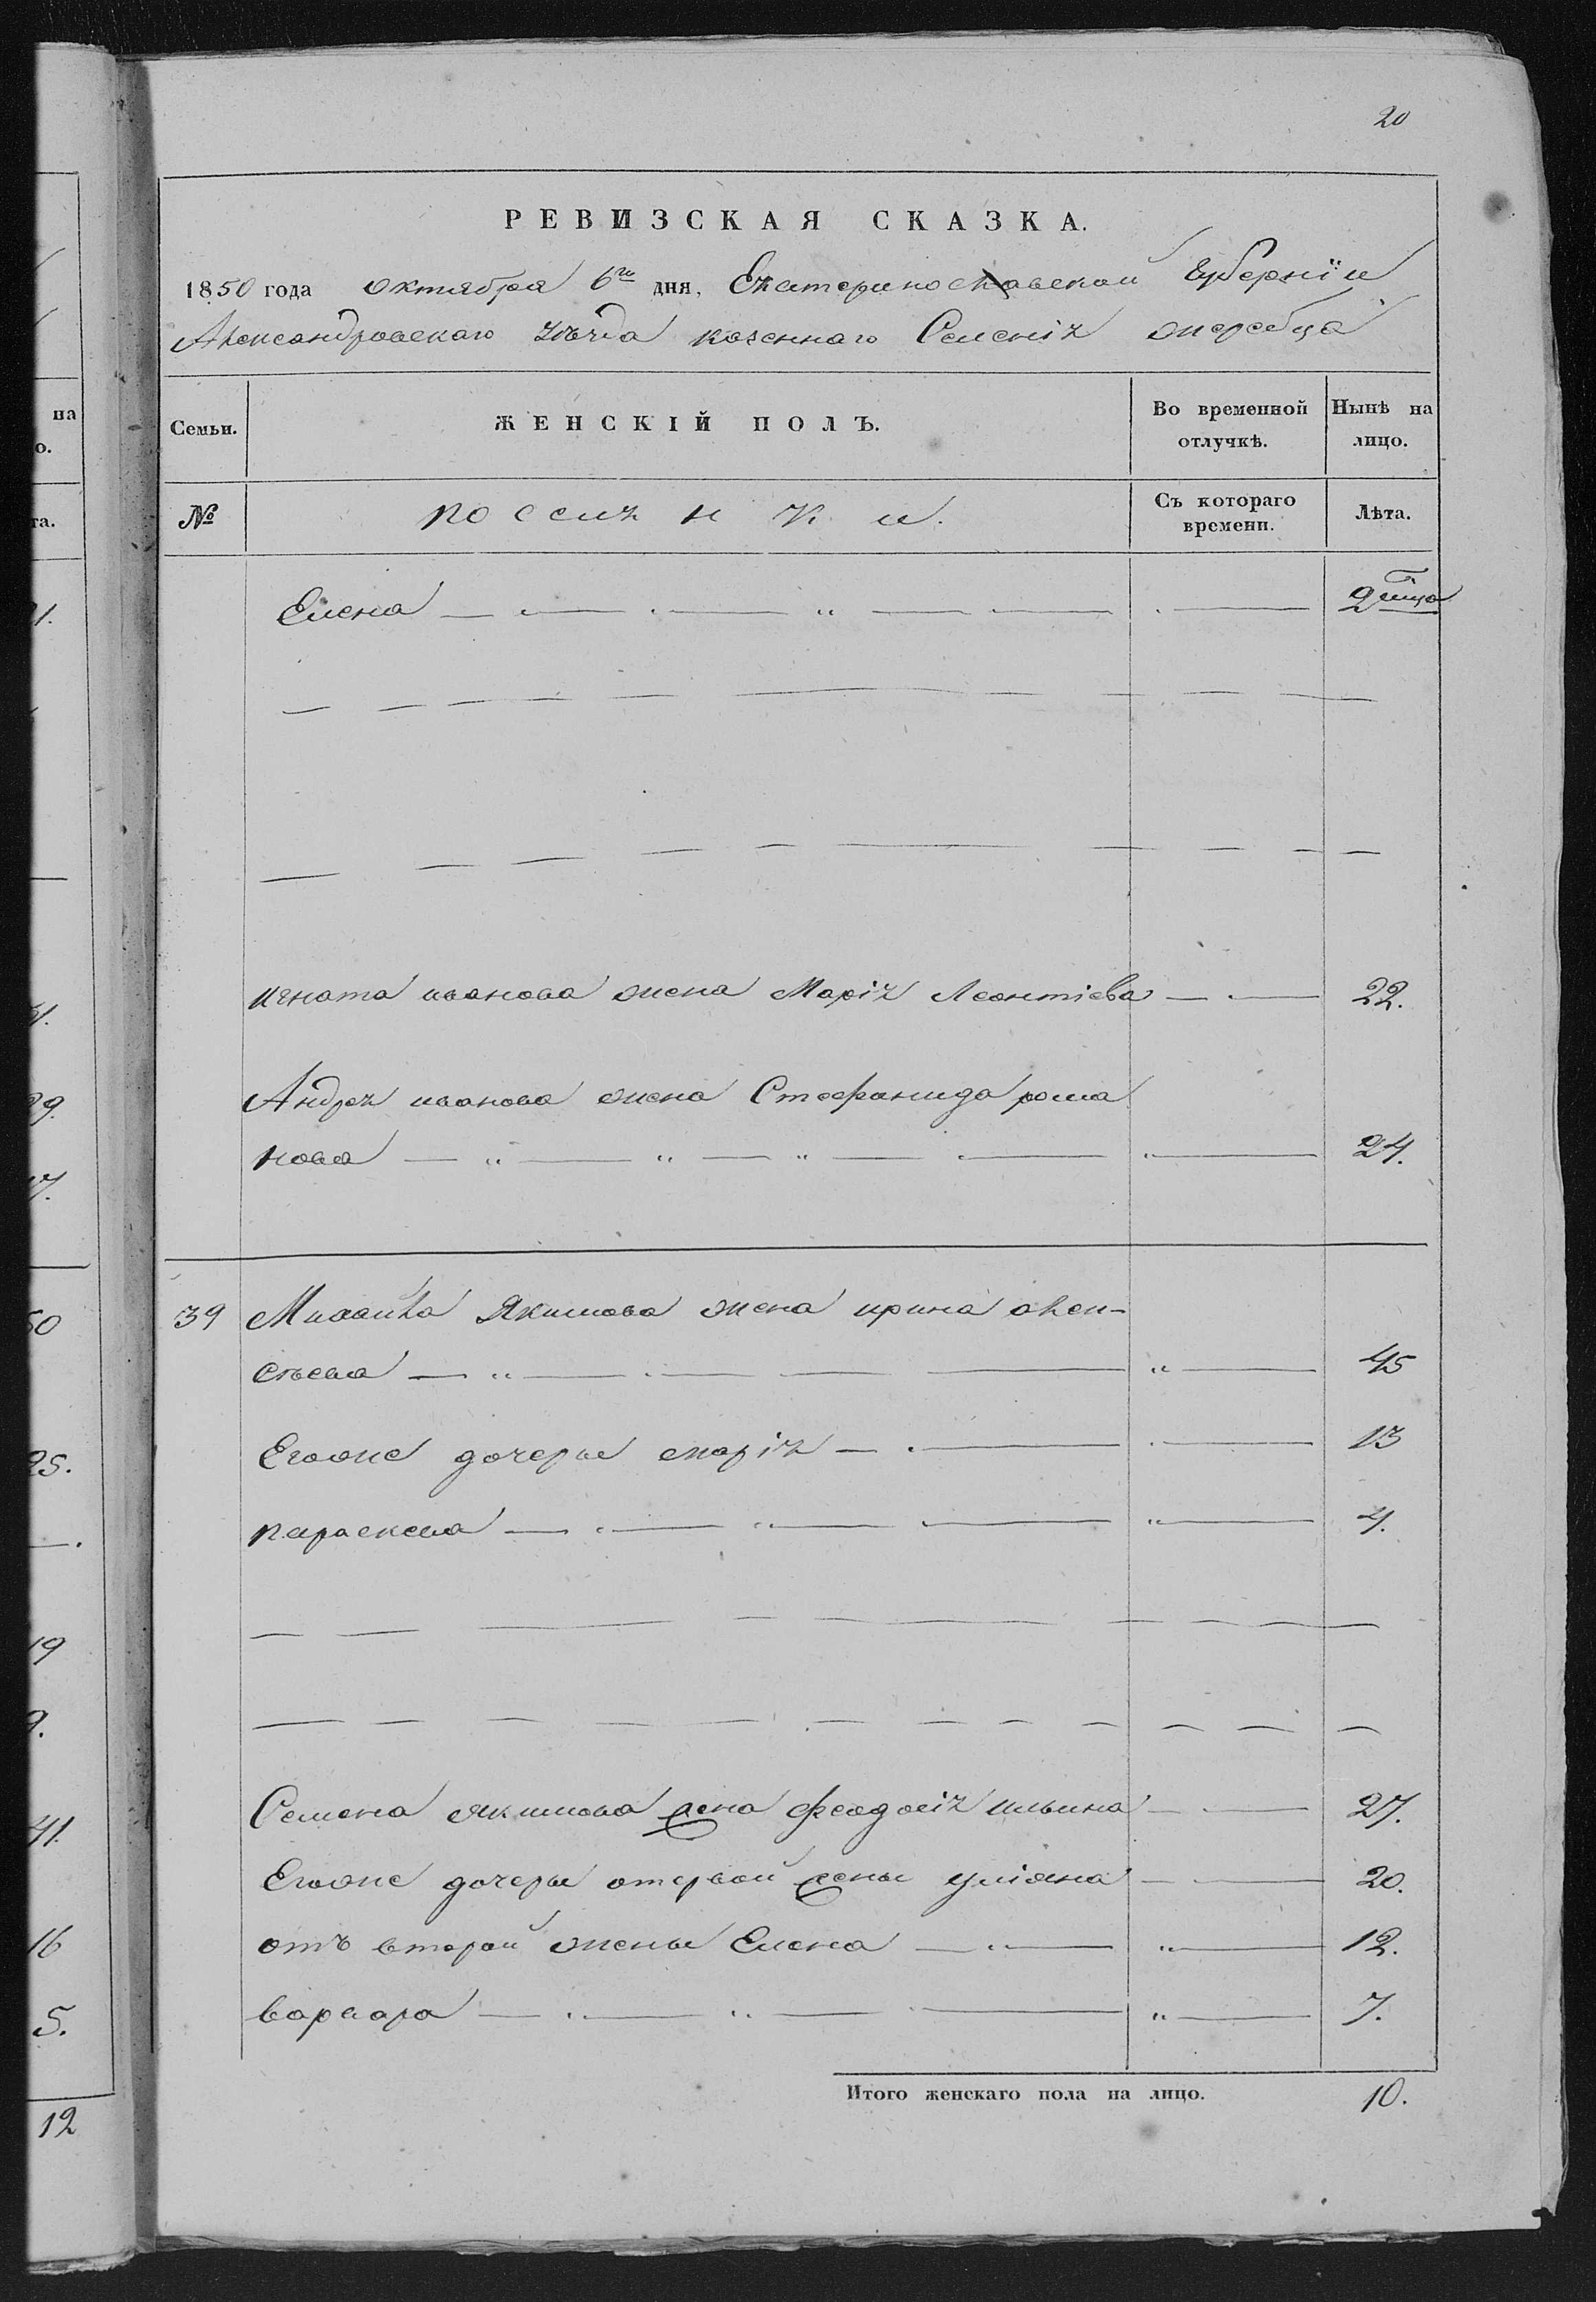 20
РЕВИЗСКАЯ СКАЗКА.
1850 года октября 6го дня, Екатеринославской Губерніи
Александровскаго уѣзда казеннаго Селенія жеребца
Семьи. ЖЕНСКІЙ ПОЛЪ. Во временной отлучкѣ. Нынѣ на лицо.
№ поселянки. Съ котораго времени. Лѣта.
Елена 2 м̃ца
игната иванова жена Марія Леонтіева 22.
Андрея иванова жена Стефанида рома
нова 24.
39 Михайла Якимова жена ирина алек-
сѣева 45
Егоже дочери марія 13
параскева 4.
Семена якимова жена феодосія ильина 27.
Егоже дочери отпервой жены уліяна 20.
отъ второй жены Елена 12.
варвара 7.
Итого женскаго пола на лицо. 10.
на
о.
та.
1.
29.
7.
50
25.
19
9.
41.
16
5.
12